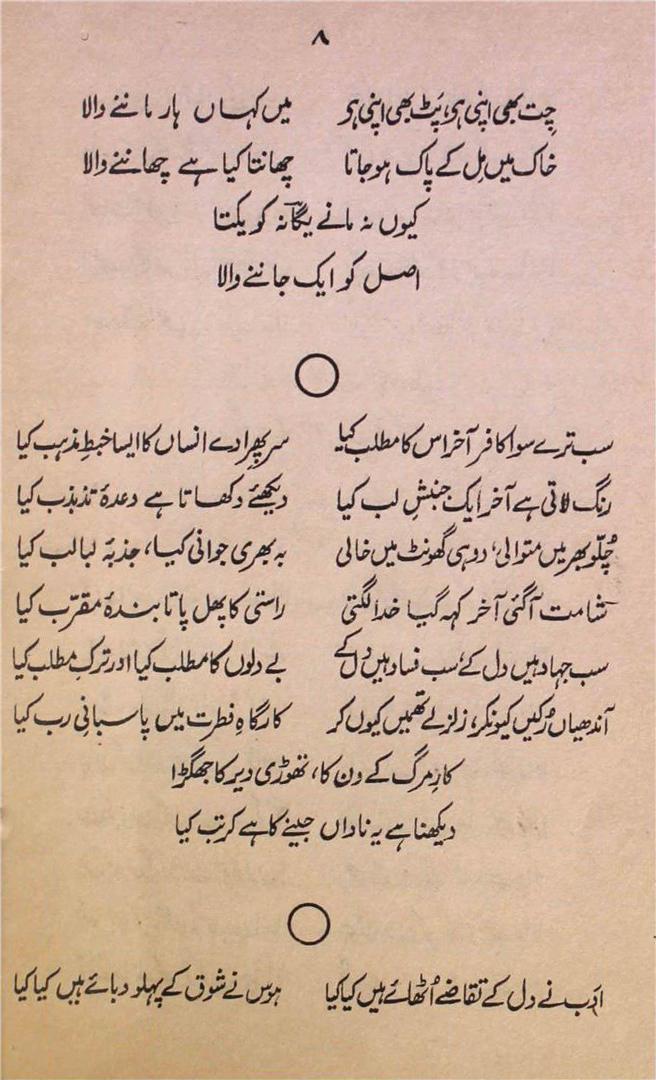 ۸
چت بھی اپنی ہی، پٹ بھی اپنی ہی میں کہاں ہار ماننے والا
خاک میں مل کے پاک ہو جاتا چھانتا کیا ہے چھاننے والا
کیوں نہ مانے یگانہ کو یکتا
اصل کو ایک جاننے والا
سب ترے سوا کافر آخر اس کا مطلب کیا سر پھرا دے انساں کا ایسا خبطِ مذہب کیا
رنگ لاتی ہے آخر ایک جنبشِ لب کیا دیکھئے دکھاتا ہے وعدۂ تذبذب کیا
چُلّو بھر میں متوالی، دو ہی گھونٹ میں خالی یہ بھری جوانی کیا، جذبۂ لبالب کیا
شامت آ گئی آخر کہہ گیا خدا لگتی راستی کا پھل پاتا بندۂ مقرّب کیا
سب جہاد ہیں دل کے، سب فساد ہیں دل کے بے دلوں کا مطلب کیا اور ترکِ مطلب کیا
آندھیاں رُکیں کیونکر، زلزلے تھمیں کیوں کر کارگاہِ فطرت میں پاسبانیِ رب کیا
کارِ مرگ کے دن کا، تھوڑی دیر کا جھگڑا
دیکھنا ہے یہ ناداں جینے کا ہے کرتب کیا
ادَب نے دل کے تقاضے اُٹھائے ہیں کیا کیا ہوس نے شوق کے پہلو دبائے ہیں کیا کیا